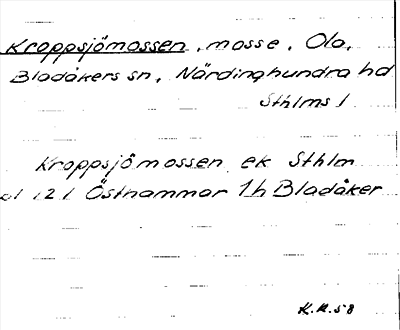 Kroppsjömossen, mosse, Ola,
Bladåkers sn, Närdinghundra hd
Sthlms l
Kroppsjömossen ek Sthlm
bl 121 Östhammar 1h Bladåker
K.M.58